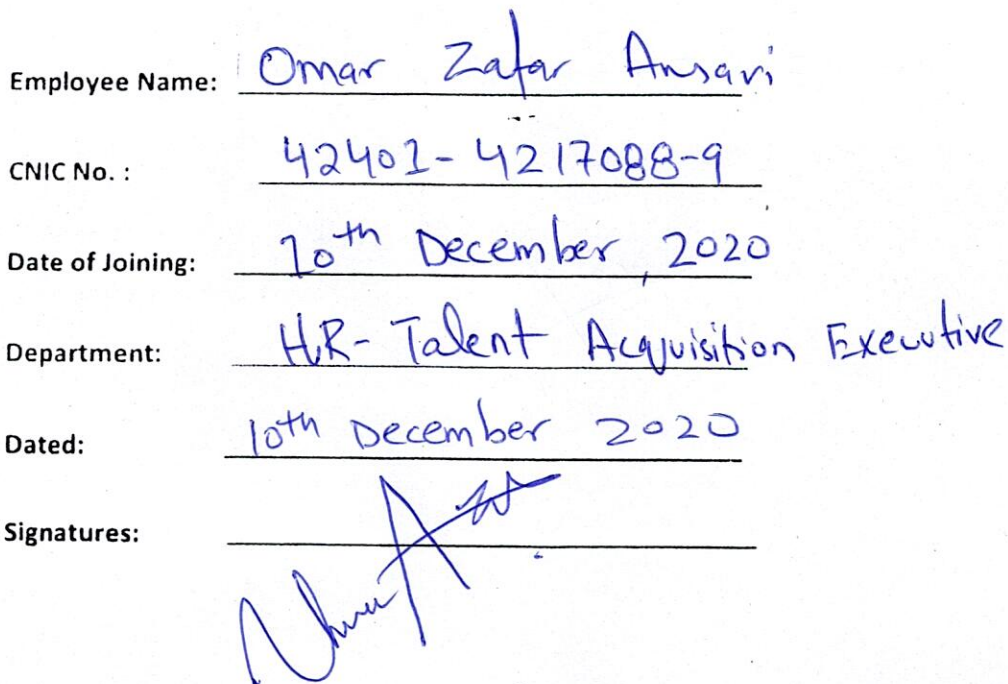 Employee Name: Omar Zafar Ansari
CNIC No. : 42401-4217088-9
Date of Joining: 10th December, 2020
Department: HR- Talent Acquisition Executive
Dated: 10th December 2020
Signatures: